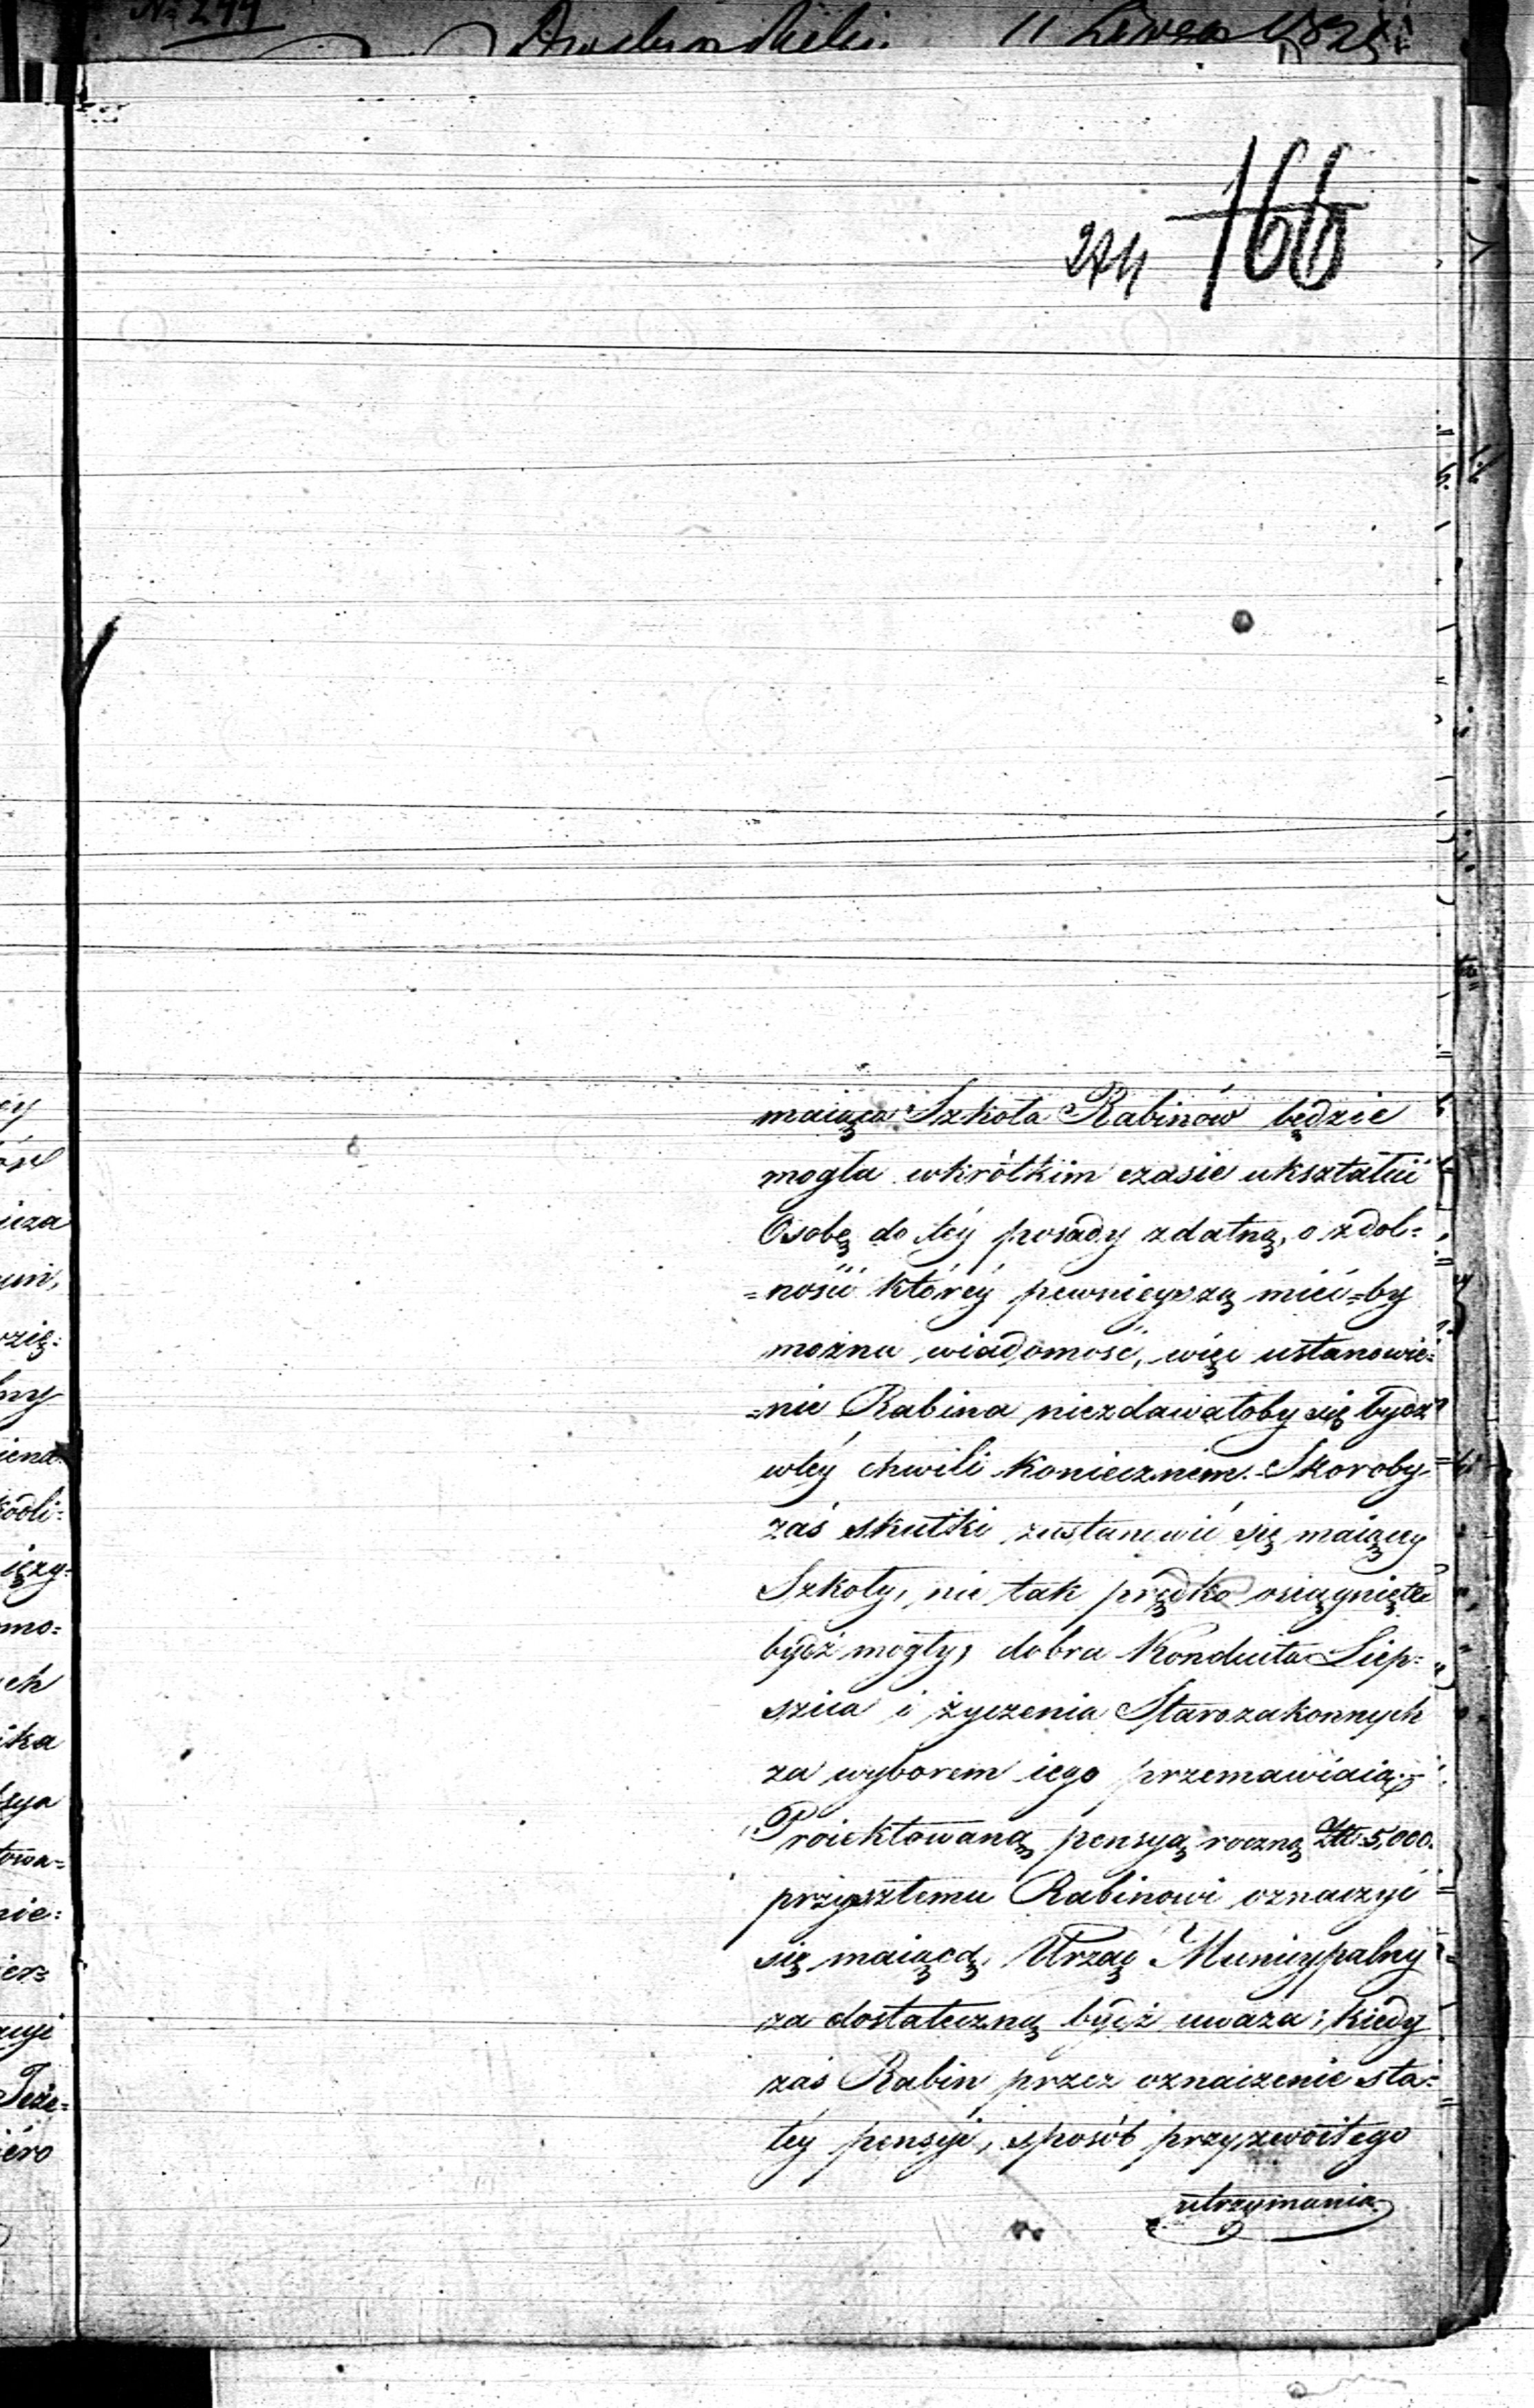 № 244
11 Czerwca 182
274 166
maiąca Szkoła Rabinów będzie
mogła wkrótkim czasie ukształcić
Osobę do téy posady zdatną, o zdol=
=ności któréy pewnieyszą mieć=by
można wiadomość, więc ustanowie=
=nie Rabina niezdawałoby się bydź
wtéy chwili koniecznem. Skoroby
zaś skutki zustanowić się maiącéy
Szkoły, nie tak prędko osiągnięte
bydź mogły, dobra Konduita Liep=
szica i życzenia Starozakonnych
za wyborem iego przemawiaią.
Proiektowaną pensyą roczną Zł: 5,000.
przyszłemu Rabinowi oznaczyć
się maiącą, Urząd Municypalny
za dostateczną bydź uważa; kiedy
zaś Rabin przez oznaczenie sta=
łéy pensyi, sposób przyzwoitego
utrzymania